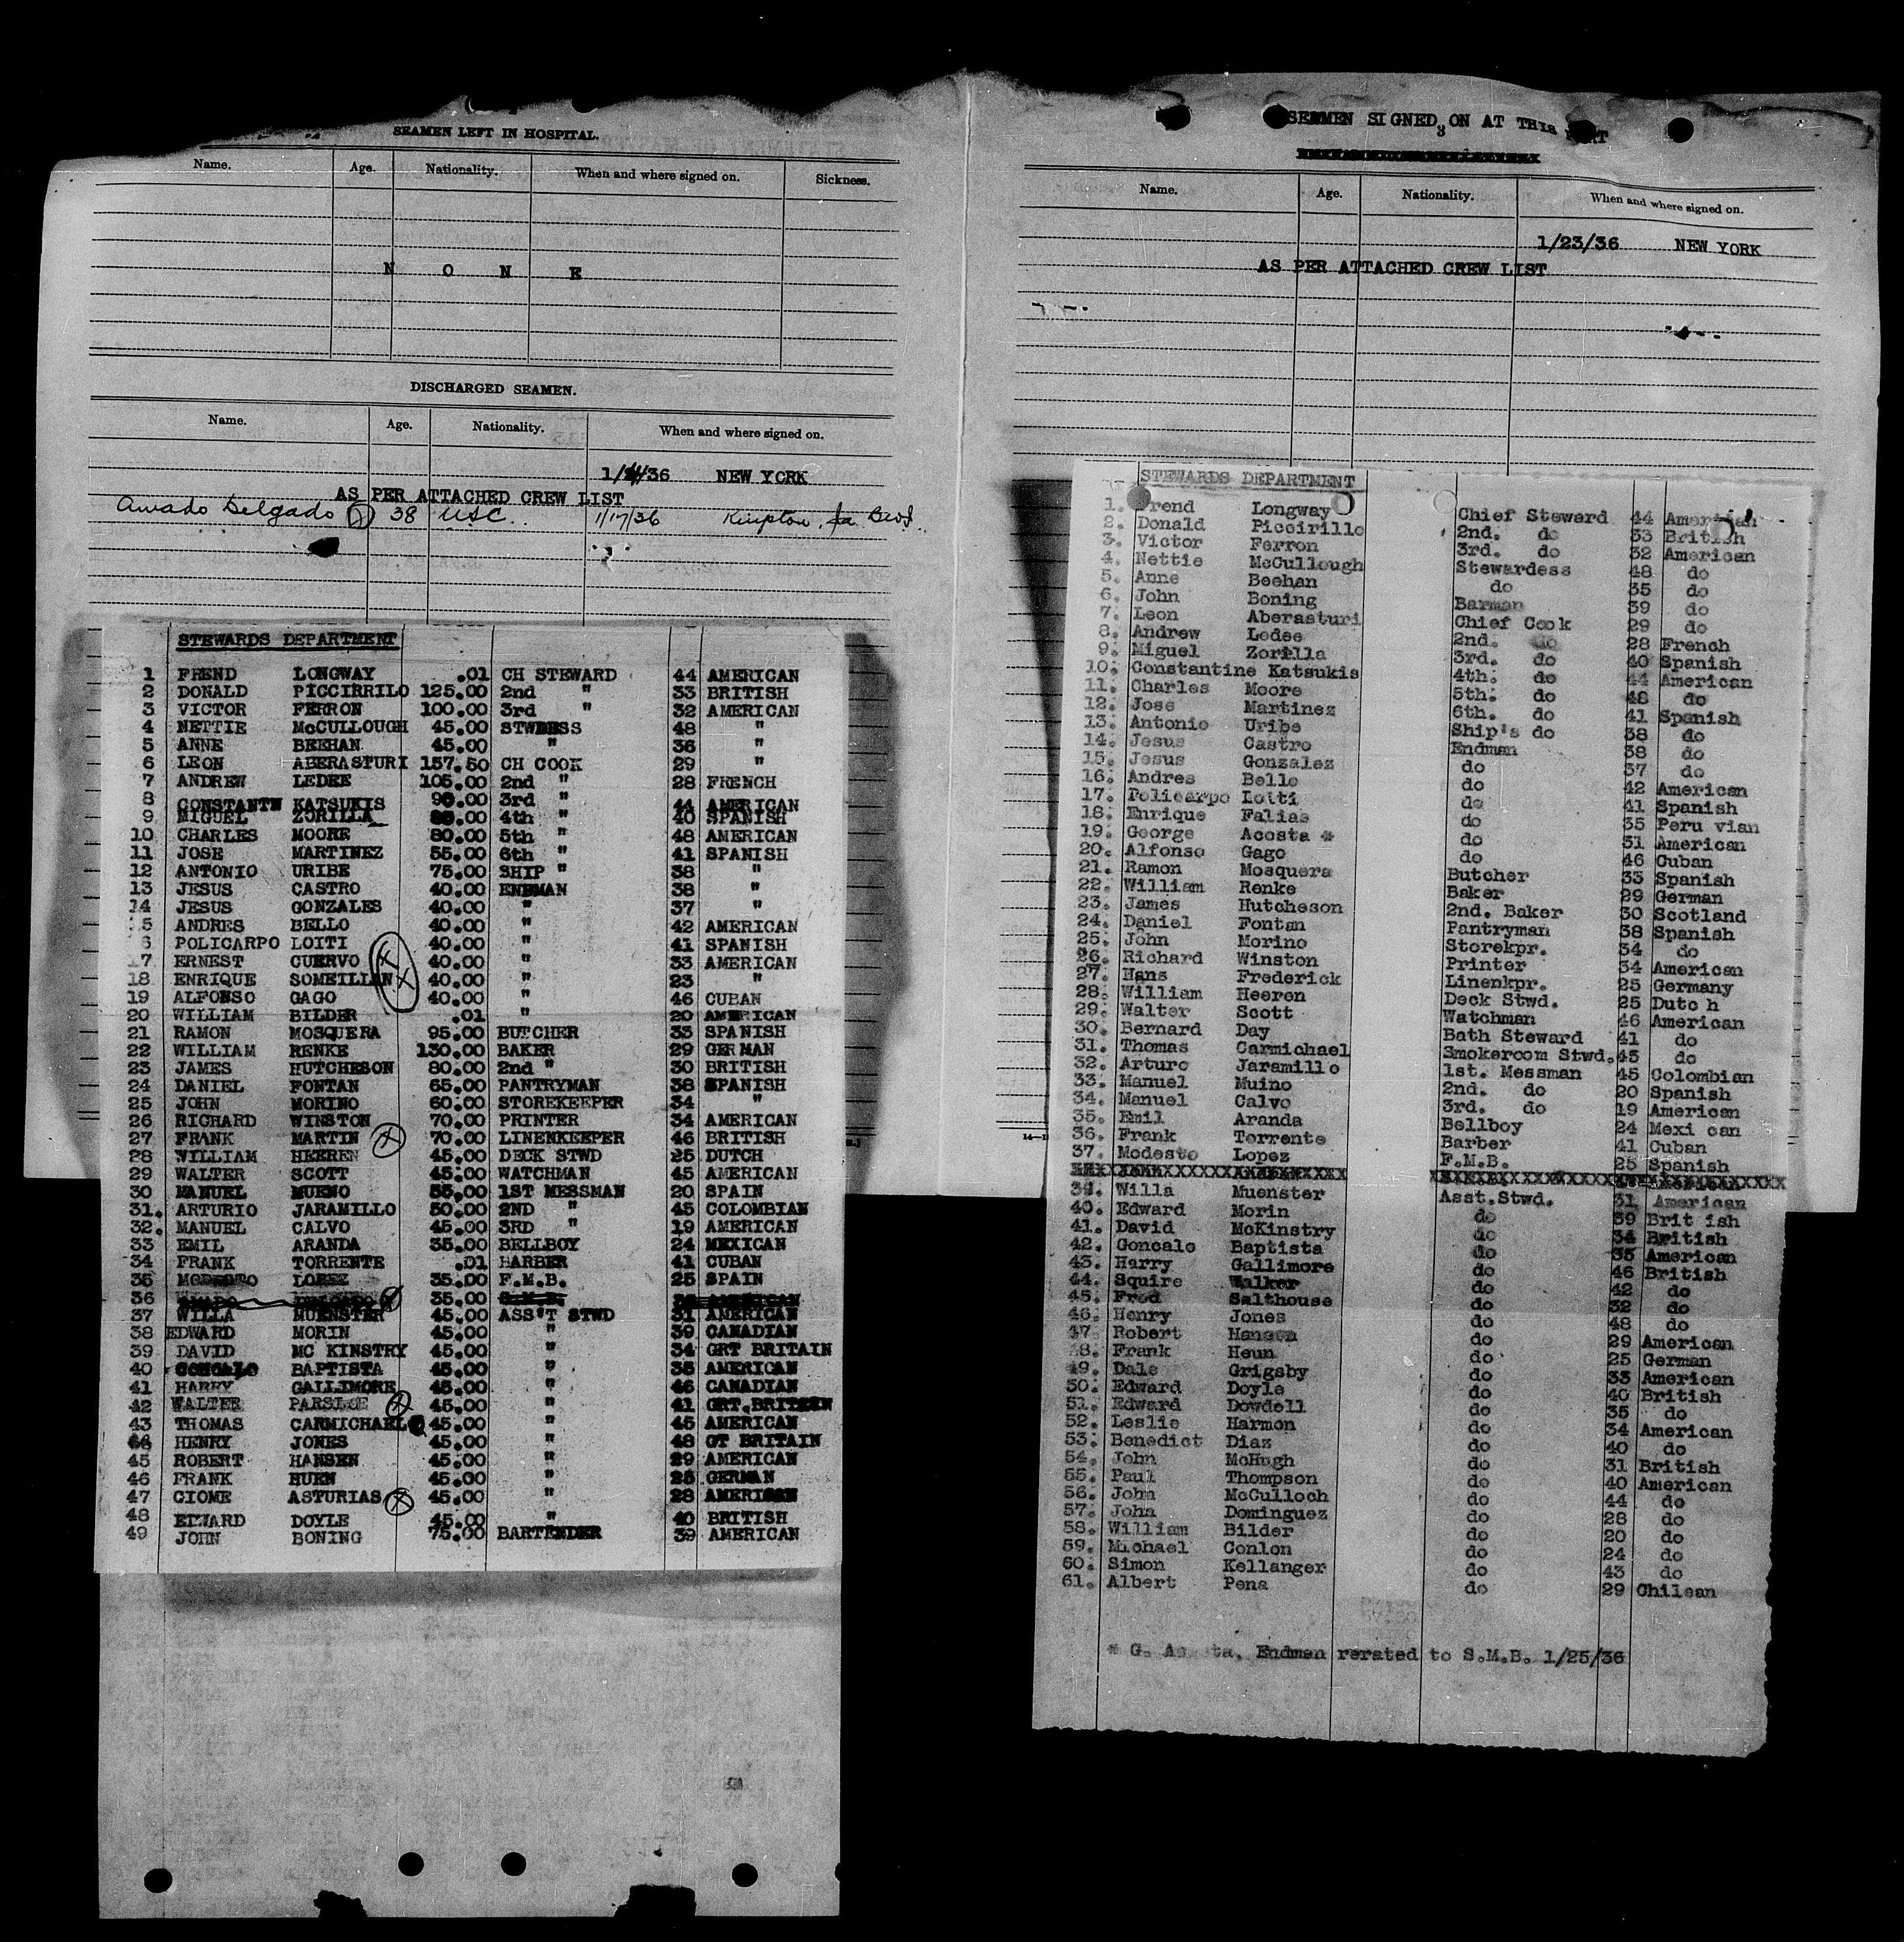 SEAMEN LEFT IN HOSPITAL.
Name. Age. Nationality. When and where signed on. Sickness.
N O N E
DISCHARGED SEAMEN.
Name. Age. Nationality. When and where signed on.
36 NEW YORK
AS PER ATTACHED CREW LIST
Amado Delgado 38 USC. 1/17/36
STEWARDS DEPARTMENT
1 FREND LONGWAY .01 CH STEWARD 44 AMERICAN
2 DONALD PICCIRRILO 125.00 2nd " 33 BRITISH
3 VICTOR FERRON 100.00 3rd " 32 AMERICAN
4 NETTIE McCULLOUGH 45.00 STWDESS 48 "
5 ANNE BEEHAN 45.00 " 36 "
6 LEON ABERASTURI 157.50 CH COOK 29 "
7 ANDREW LEDEE 105.00 2nd " 28 FRENCH
8 CONSTANTN KATSUKIS 90.00 3rd " 44 AMERICAN
9 MIGUEL ZORILLA 4th " 40 SPANISH
10 CHARLES MOORE 80.00 5th " 48 AMERICAN
11 JOSE MARTINEZ 55.00 6th " 41 SPANISH
12 ANTONIO URIBE 75.00 SHIP " 38 "
13 JESUS CASTRO 40.00 ENDMAN 38 "
14 JESUS GONZALES 40.00 " 37 "
5 ANDRES BELLO 40.00 " 42 AMERICAN
6 POLICARPO LOITI 40.00 " 41 SPANISH
7 ERNEST CUERVO X 40.00 " 33 AMERICAN
18 ENRIQUE SOMEILLAN X 40.00 " 23 "
19 ALFONSO GAGO 40.00 " 46 CUBAN
20 WILLIAM BILDER .01 " 20 AMERICAN
21 RAMON MOSQUERA 95.00 BUTCHER 33 SPANISH
22 WILLIAM RENKE 130.00 BAKER 29 GERMAN
23 JAMES HUTCHESON 80.00 2nd " 30 BRITISH
24 DANIEL FONTAN 65.00 PANTRYMAN 38 SPANISH
25 JOHN MORINO 60.00 STOREKEEPER 34 "
26 RICHARD WINSTON 70.00 PRINTER 34 AMERICAN
27 FRANK MARTIN X 70.00 LINENKEEPER 46 BRITISH
28 WILLIAM HEEREN 45.00 DECK STWD 25 DUTCH
29 WALTER SCOTT 45.00 WATCHMAN 45 AMERICAN
30 MANUEL MUENO 55.00 1ST MESSMAN 20 SPAIN
31. ARTURIO JARAMILLO 50.00 2ND " 45 COLOMBIAN
32. MANUEL CALVO 45.00 3RD " 19 AMERICAN
33 EMIL ARANDA 35.00 BELLBOY 24 MEXICAN
34 FRANK TORRENTE .01 BARBER 41 CUBAN
35 MODESTO LOPEZ 35.00 F.M.B. 25 SPAIN
36 X 35.00 S.M.B. AMERICAN
37 WILLA MUENSTER 45.00 ASS'T STWD 31 AMERICAN
38 EDWARD MORIN 45.00 " 39 CANADIAN
39 DAVID MC KINSTRY 45.00 " 34 GRT BRITAIN
40 GONCALO BAPTISTA 45.00 " 35 AMERICAN
41 HARRY GALLIMORE 45.00 " 46 CANADIAN
42 WALTER X 45.00 " 41
43 THOMAS CARMICHAEL 45.00 " 45 AMERICAN
44 HENRY JONES 45.00 " 48 GT BRITAIN
45 ROBERT HANSEN 45.00 " 29 AMERICAN
46 FRANK HUEN 45.00 " 25 GERMAN
47 CIOME ASTURIAS X 45.00 " 28 AMERICAN
48 EDWARD DOYLE 45.00 " 40 BRITISH
49 JOHN BONING 75.00 BARTENDER 39 AMERICAN
SEAMEN SIGNED ON AT THIS
3
Name. Age. Nationality. When and where signed on.
1/23/36 NEW YORK
AS PER ATTACHED CREW LIST
STEWARDS DEPARTMENT
1. Frend Longway Chief Steward 44 American
2. Donald Piccirillo 2nd. do 33 British
3. Victor Ferron 3rd. do 32 American
4. Nettie McCullough Stewardess 48 do
5. Anne Beehan do 35 do
6. John Boning Barman 39 do
7. Leon Aberasturi Chief Cook 29 do
8. Andrew Ledee 2nd. do 28 French
9. Miguel Zorilla 3rd. do 40 Spanish
10. Constantine Katsukis 4th. do 44 American
11. Charles Moore 5th. do 48 do
12. Jose Martinez 6th. do 41 Spanish
13. Antonio Uribe Ship's do 38 do
14. Jesus Castro Endman 38 do
15. Jesus Gonzalez do 37 do
16. Andres Bello do 42 American
17. Policarpo Loiti do 41 Spanish
18. Enrique Falias do 35 Peru vian
19. George Acosta * do 31 American
20. Alfonso Gago do 46 Cuban
21. Ramon Mosquera Butcher 33 Spanish
22. William Renke Baker 29 German
23. James Hutcheson 2nd. Baker 30 Scotland
24. Daniel Fontan Pantryman 38 Spanish
25. John Morino Storekpr. 34 do
26. Richard Winston Printer 34 American
27. Hans Frederick Linenkpr. 25 Germany
28. William Heeren Deck Stwd. 25 Dutc h
29. Walter Scott Watchman 46 American
30. Bernard Day Bath Steward 41 do
31. Thomas Carmichael Smokeroom Stwd. 45 do
32. Arturo Jaramillo 1st. Messman 45 Colombian
33. Manuel Muino 2nd. do 20 Spanish
34. Manuel Calvo 3rd. do 19 American
35. Emil Aranda Bellboy 24 Mexi can
36. Frank Torrente Barber 41 Cuban
37. Modesto Lopez F.M.B. 25 Spanish
39. Willa Muenster Asst.Stwd. 31 American
40. Edward Morin do 39 Brit ish
41. David McKinstry do 34 British
42. Goncalo Baptista do 35 American
43. Harry Gallimore do 46 British
44. Squire Walker do 42 do
45. Fred Salthouse do 32 do
46. Henry Jones do 48 do
47. Robert Hansen do 29 American
48. Frank Heun do 25 German
49. Dale Grigsby do 33 American
50. Edward Doyle do 40 British
51. Edward Dowdell do 35 do
52. Leslie Harmon do 34 American
53. Benedict Diaz do 40 do
54. John McHugh do 31 British
55. Paul Thompson do 40 American
56. John McCulloch do 44 do
57. John Dominguez do 28 do
58. William Bilder do 20 do
59. Michael Conlon do 24 do
60. Simon Kellanger do 43 do
61. Albert Pena do 29 Chilean
* G. Endman rerated to S.M.B. 1/25/36